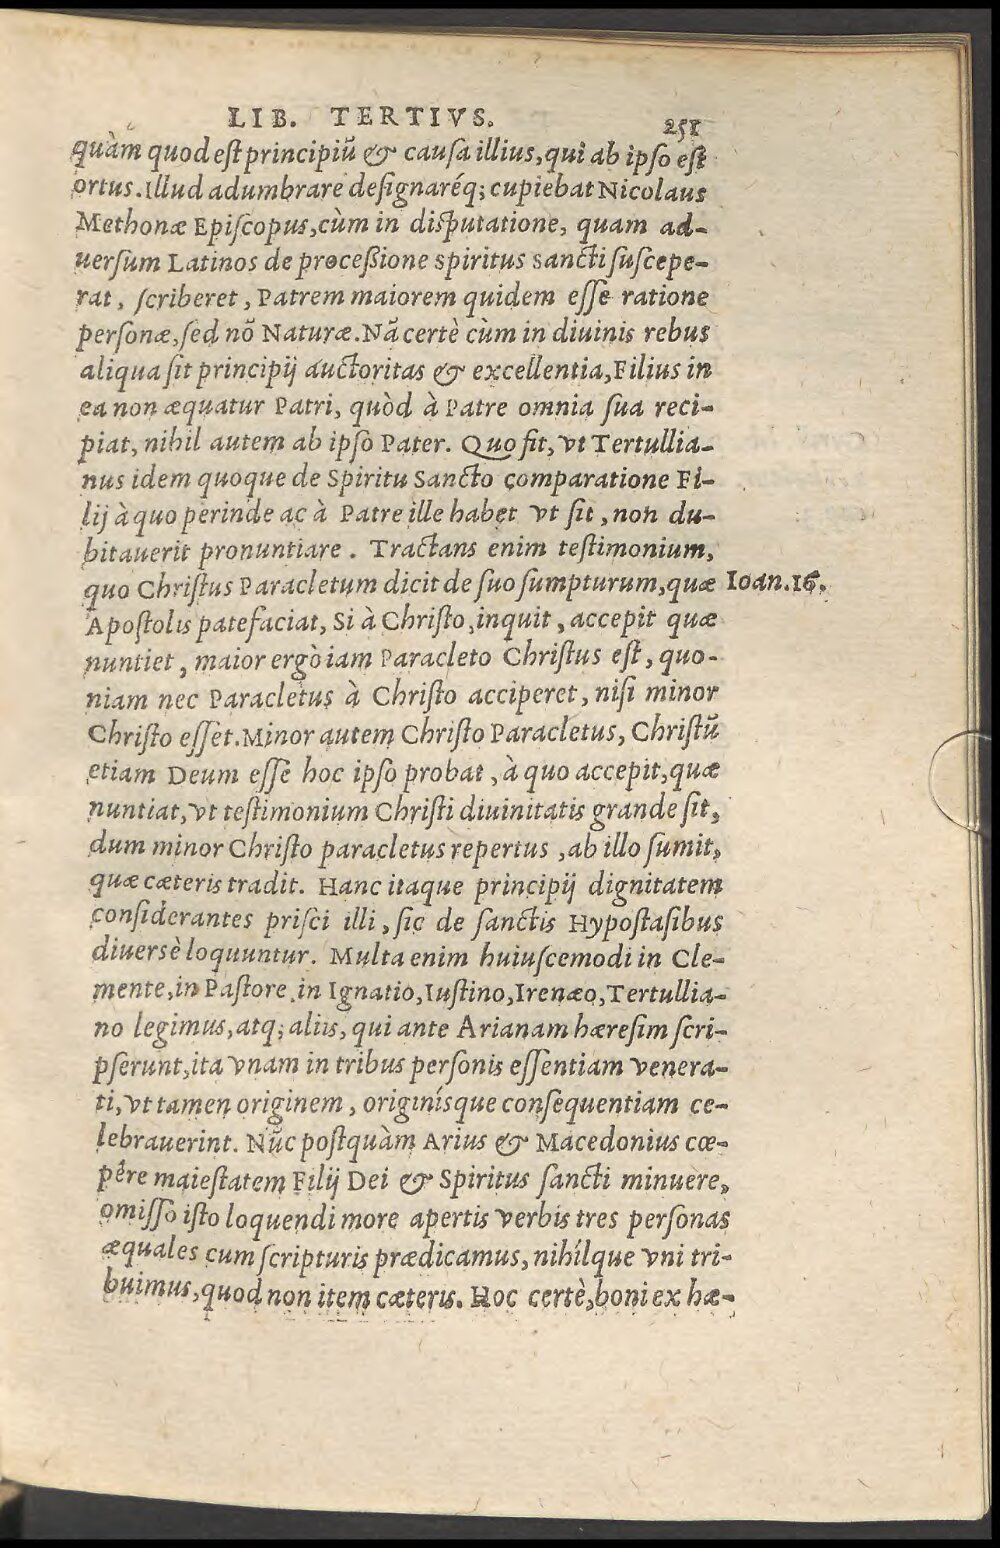 LIB. TERTIVS. 251
quàm quod est principiũ & causa illius, qui ab ipso est
ortus. Illud adumbrare designaréq; cupiebat Nicolaus
Methonæ Episcopus, cùm in disputatione, quam ad-
uersum Latinos de processione spiritus sancti suscepe-
rat, scriberet, Patrem maiorem quidem esse ratione
personæ, sed nõ Naturæ. Nã certè cùm in diuinis rebus
aliqua sit principij auctoritas & excellentia, Filius in
ea non æquatur Patri, quòd à Patre omnia sua reci-
piat, nihil autem ab ipso Pater. Quo fit, vt Tertullia-
nus idem quoque de Spiritu Sancto comparatione Fi-
lij à quo perinde ac à Patre ille habet vt sit, non du-
bitauerit pronuntiare. Tractans enim testimonium,
quo Christus Paracletum dicit de suo sumpturum, quæ Ioan.16.
Apostolis patefaciat, Si à Christo, inquit, accepit quæ
nuntiet, maior ergò iam Paracleto Christus est, quo-
niam nec Paracletus à Christo acciperet, nisi minor
Christo esset. Minor autem Christo Paracletus, Christũ
etiam Deum esse hoc ipso probat, à quo accepit, quæ
nuntiat, vt testimonium Christi diuinitatis grande sit,
dum minor Christo paracletus repertus, ab illo sumit,
quæ cæteris tradit. Hanc itaque principij dignitatem
considerantes prisci illi, sic de sanctis Hypostasibus
diuersè loquuntur. Multa enim huiuscemodi in Cle-
mente, in Pastore, in Ignatio, Iustino, Irenæo, Tertullia-
no legimus, atq; aliis, qui ante Arianam hæresim scri-
pserunt, ita vnam in tribus personis essentiam venera-
ti, vt tamen originem, originísque consequentiam ce-
lebrauerint. Nũc postquàm Arius & Macedonius cœ-
pêre maiestatem Filij Dei & Spiritus sancti minuere,
omisso isto loquendi more apertis verbis tres personas
æquales cum scripturis prædicamus, nihílque vni tri-
buimus, quod non item cæteris. Hoc certè, boni ex hæ-